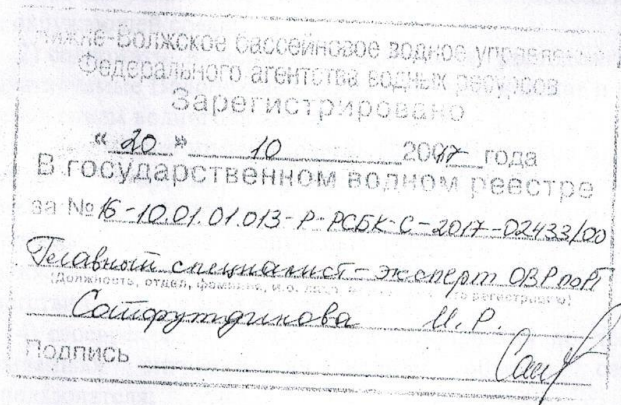 Нижне-Волжское бассейновое водное управление
Федерального агентства водных ресурсов
Зарегистрировано
« 20 » 10 2017 года
В государственном водном реестре
за № 16-10.01.01.013-Р-РСБК-С-2017-02433/00
Главный специалист-эксперт ОВР по РТ
(Должность, отдел, фамилия, и.о. лица, регистрацию)
Сайфутдинова И. Р.
Подпись